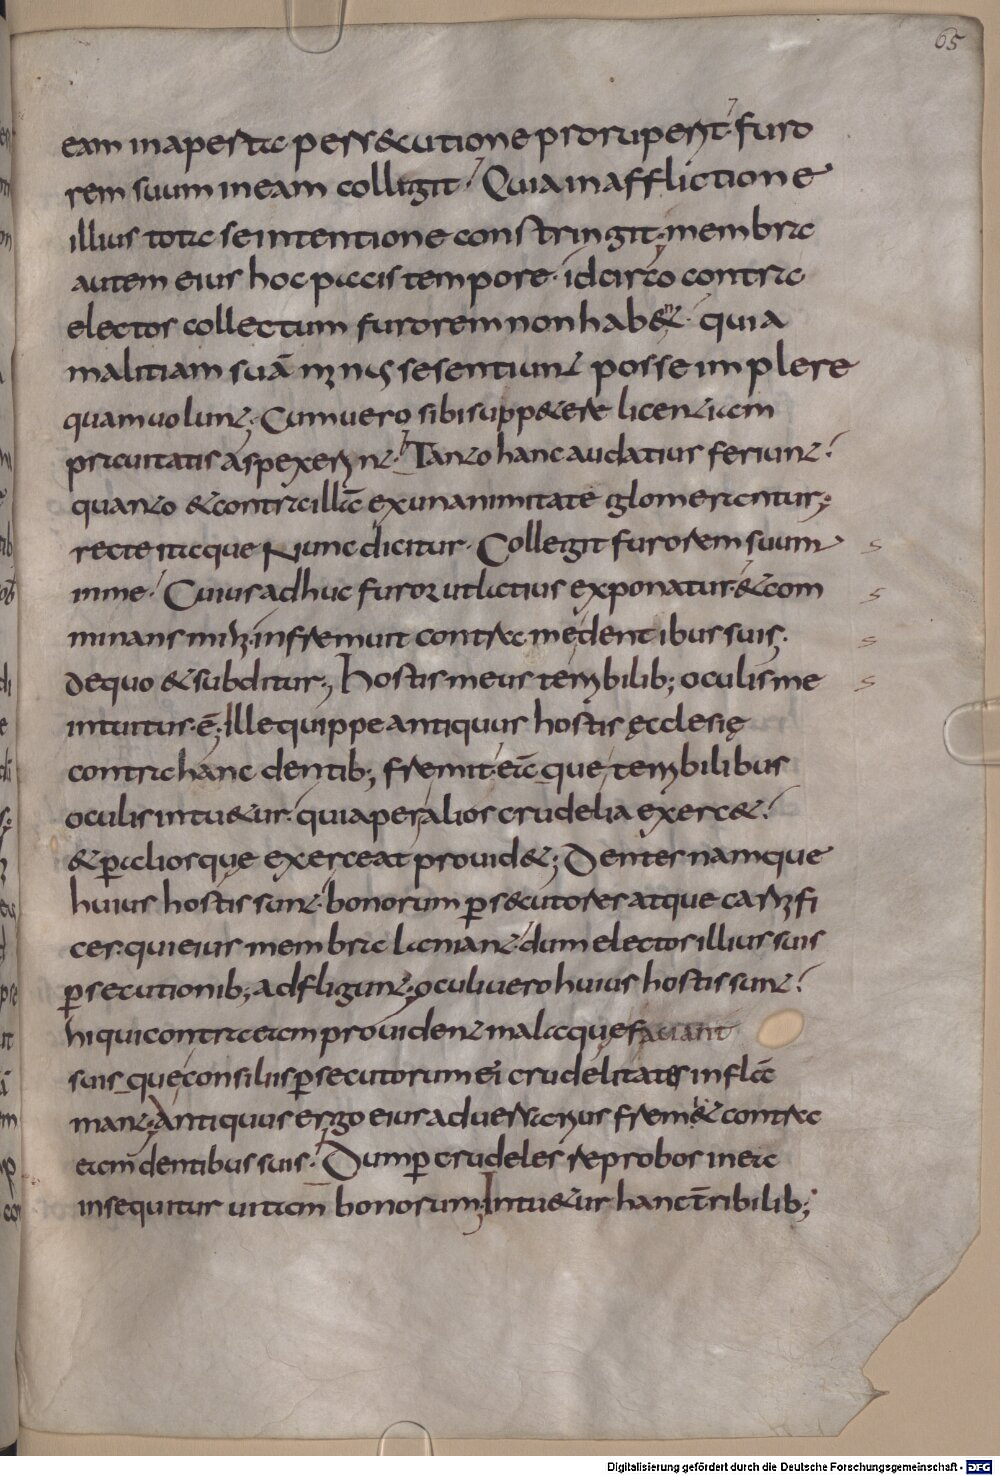 65
eam in aperta persecutione proruperit furo
rem suum in eam colligit. Quia in afflictione
illius tota se intentione constringit; membra
autem eius hoc pacis tempore. idcirco contra
electos collectum furorem non hab&. quia
malitiam suā se sentiunt posse implere
quam uolunt; Cum uero sibi supp&ere licentiam
prauitatis aspexerint. Tanto hanc audatius feriunt.
quanto & contra illā ex unanimitate glomerantur;
recte itaque nunc dicitur. Collegit furorem suum
in me. Cuius adhuc furor ut latius exponatur. & com
minans mihi infremuit contra me dentibus suis.
de quo & subditur; hostis meus terribilib; oculis me
intuitus. ē; Ille quippe antiquus hostis ęcclesię
contra hanc dentib; fremit eāque terribilibus
oculis intu&ur. quia per alios crudelia exerc&.
& ꝑ alios que exerceat prouid&; Dentes namque
huius hostis sunt. bonorum ꝑs&cutores atque carnifi
ces. qui eius membra laniant dum electos illius suis
ꝑsecutionib; adfligunt; oculi uero huius hostis sunt.
hi qui contra eam prouident mala que faciant
suisque consiliis ꝑsecutorum ei crudelitates inflā
mant; Antiquus ergo eius aduersarius frem& contra
eam dentibus suis. Dum ꝑ crudeles reprobos in ea
insequitur uitam bonorum; Intu&ur hanc t̄ribilib;
Digitalisierung gefördert durch die Deutsche Forschungsgemeinschaft - DFG